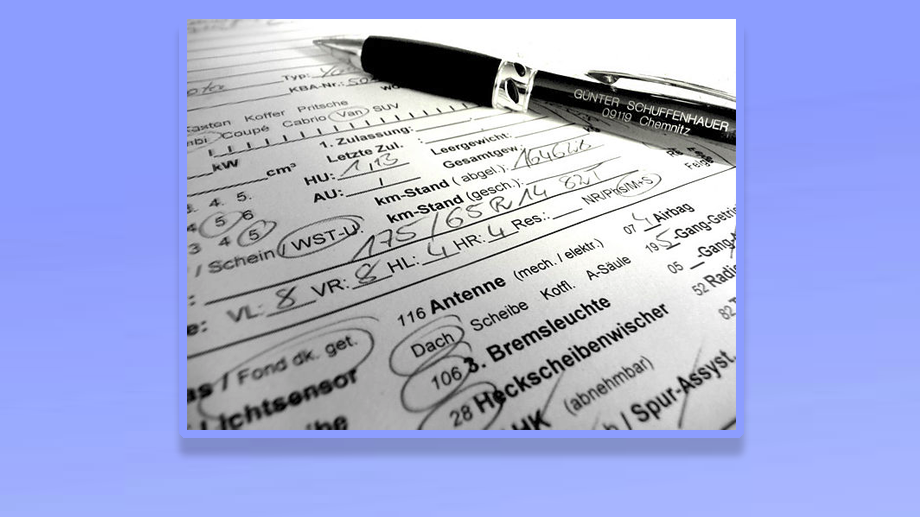 GÜNTER SCHUFFENHAUER
09119 Chemnitz
Typ:
KBA-Nr.:
Kasten Koffer Pritsche
Coupé Cabrio Van SUV
kW
cm³
1. Zulassung:
Letzte Zul.
HU: 1,13
AU:
Leergewicht:
Gesamtgew.:
km-Stand (abgel.):
km-Stand (gesch.):
3. 4. 5.
4 5 6
3 4 5
/ Schein / WST-U.
175/65 R 14 82T
NR/Pn/S/M+S
VL: 8 VR: 8 HL: 4 HR: 4 Res.:
07 4 Airbag
19 5-Gang-Getrie
05 -Gang-
52 Radi
82
116 Antenne (mech. / elektr.)
Dach Scheibe Kotfl. A-Säule
106 3. Bremsleuchte
28 Heckscheibenwischer
HK (abnehmbar)
/ Spur-Assyst.
/ Fond dk. get.
Lichtsensor